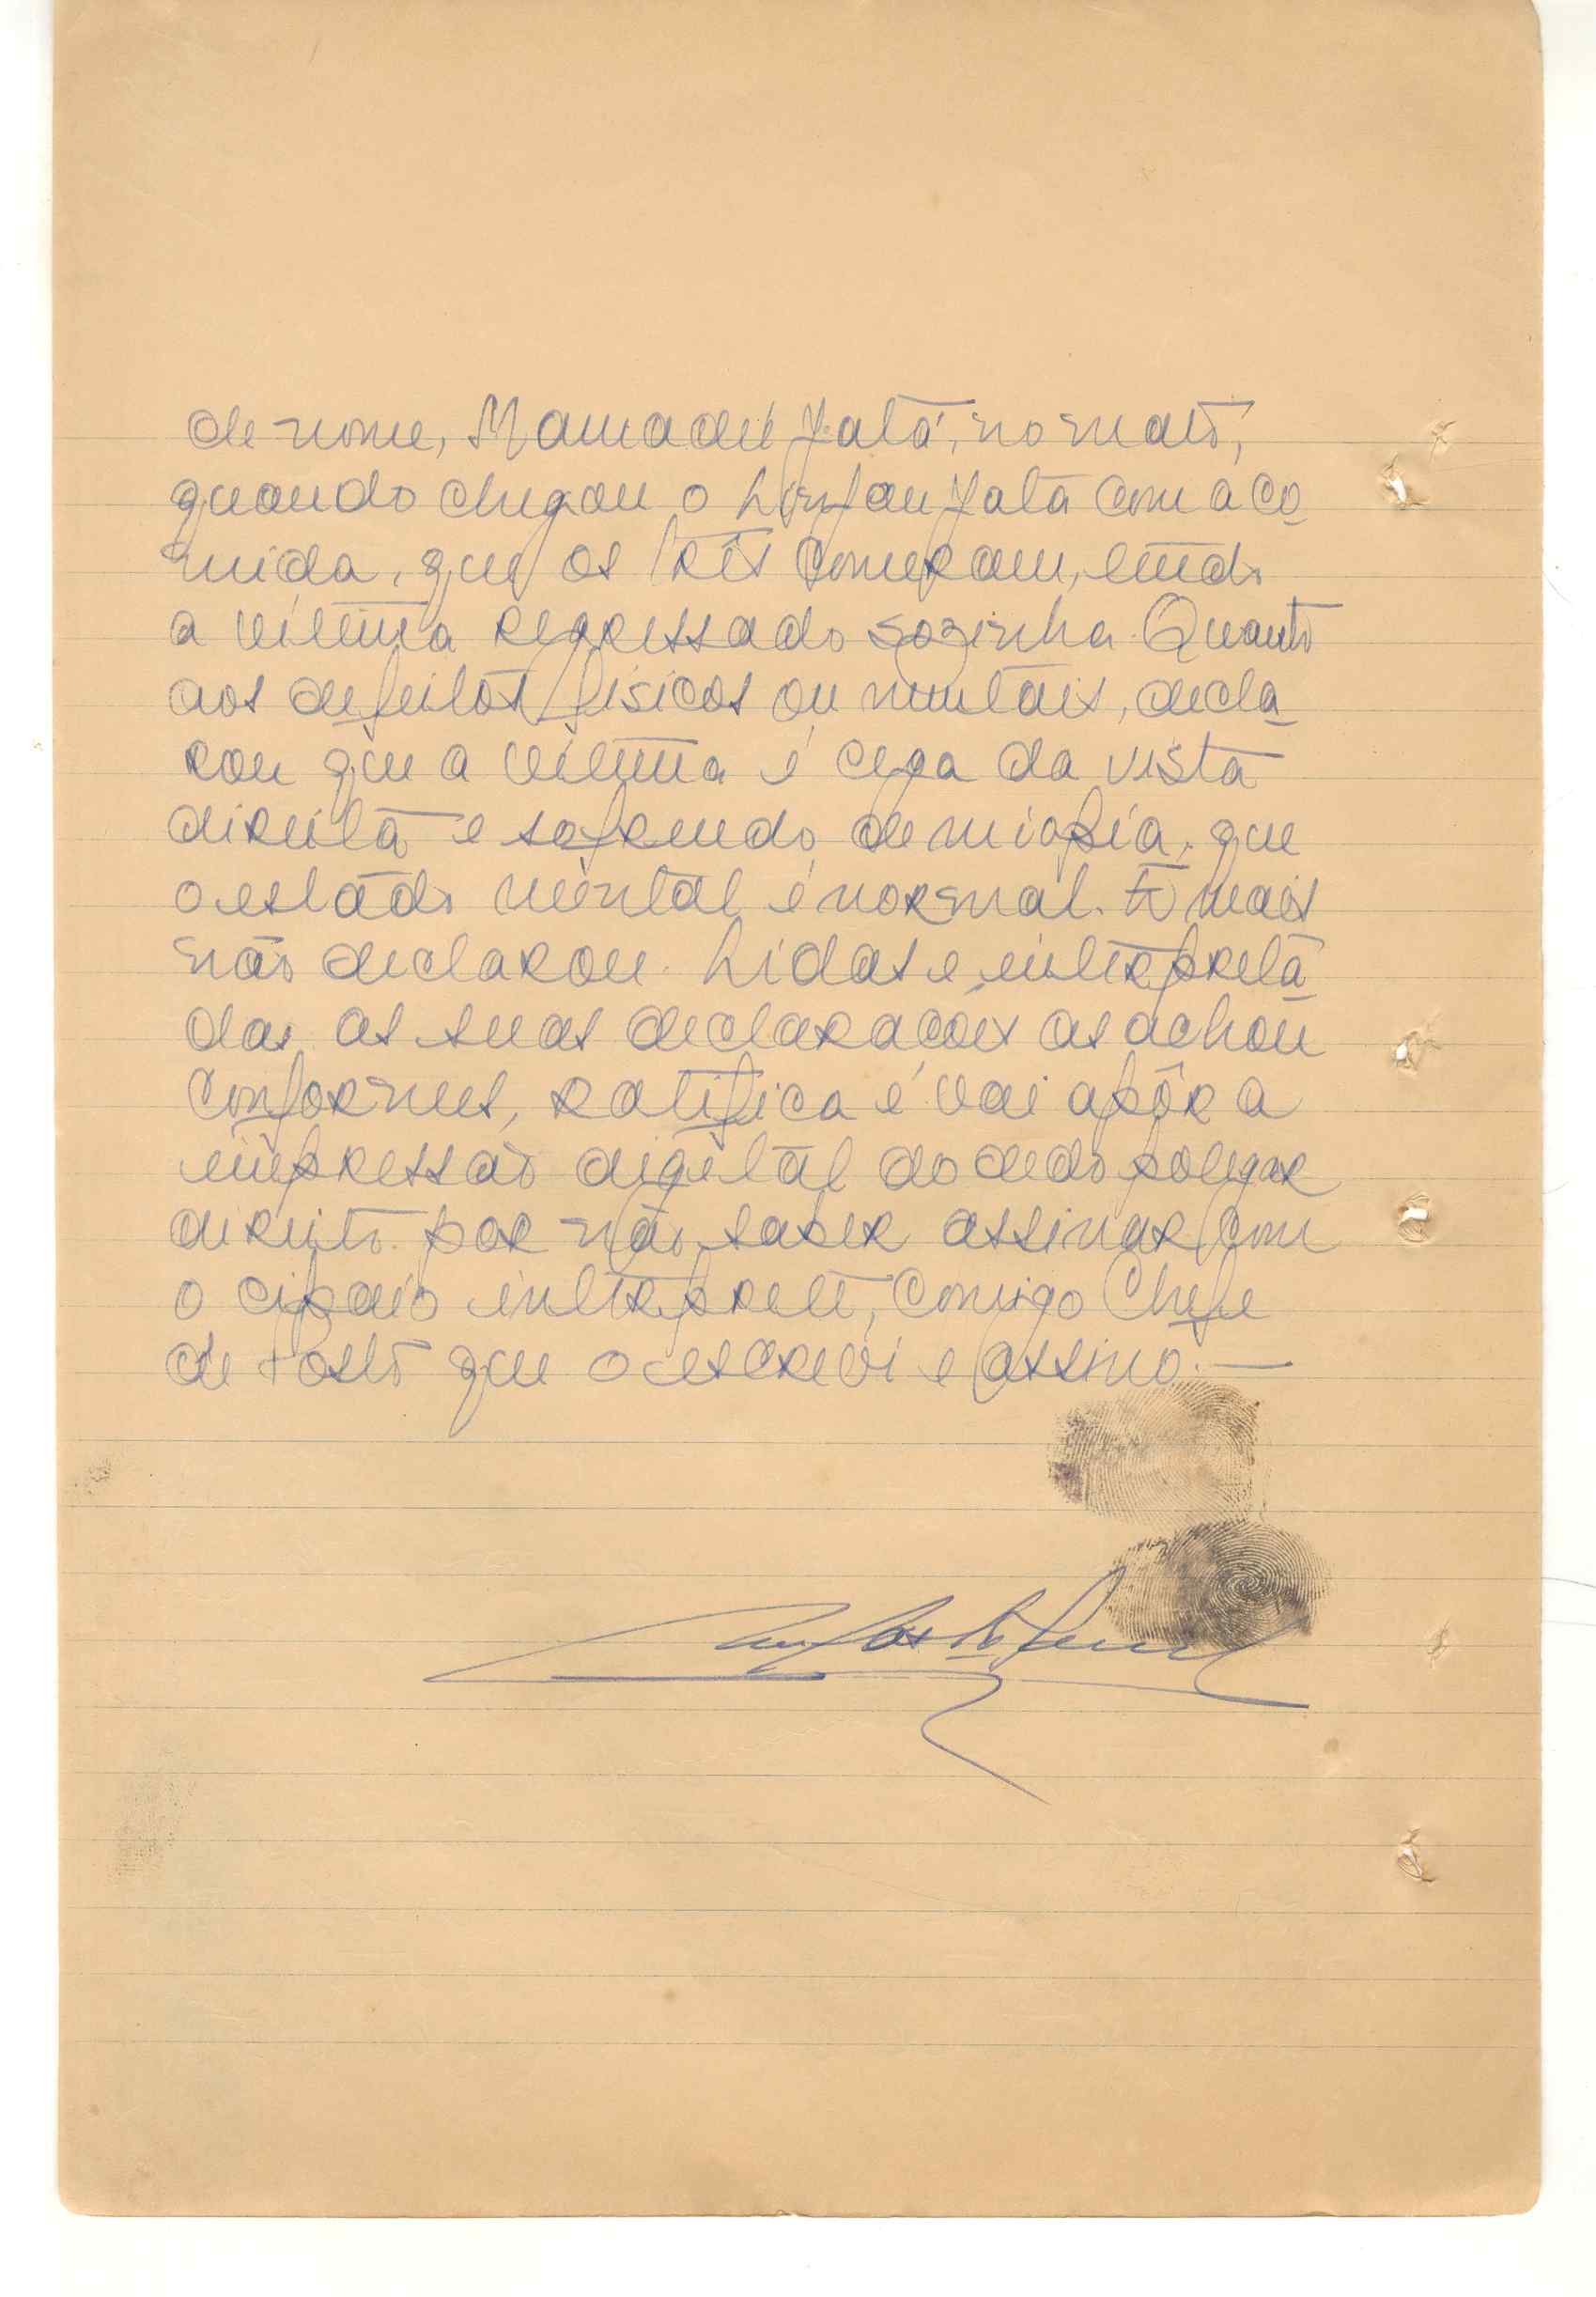 de nome, Mamadú Jatá, no mato,
quando chegou o Linfan Jatá com a co
mida, que os três comeram, tendo
a vítima regressado sozinha. Quanto
aos defeitos físicos ou mentais, decla
rou que a vítima é cega da vista
direita e sofrendo de miopia, que
o estado mental é normal. E mais
não declarou. Lidas e interpreta
das as suas declarações as achou
conformes, ratifica e vai apôr a
impressão digital do dedo polegar
direito por não saber assinar com
o cipaio intérprete, comigo Chefe
de Posto que o escrevi e assino.—